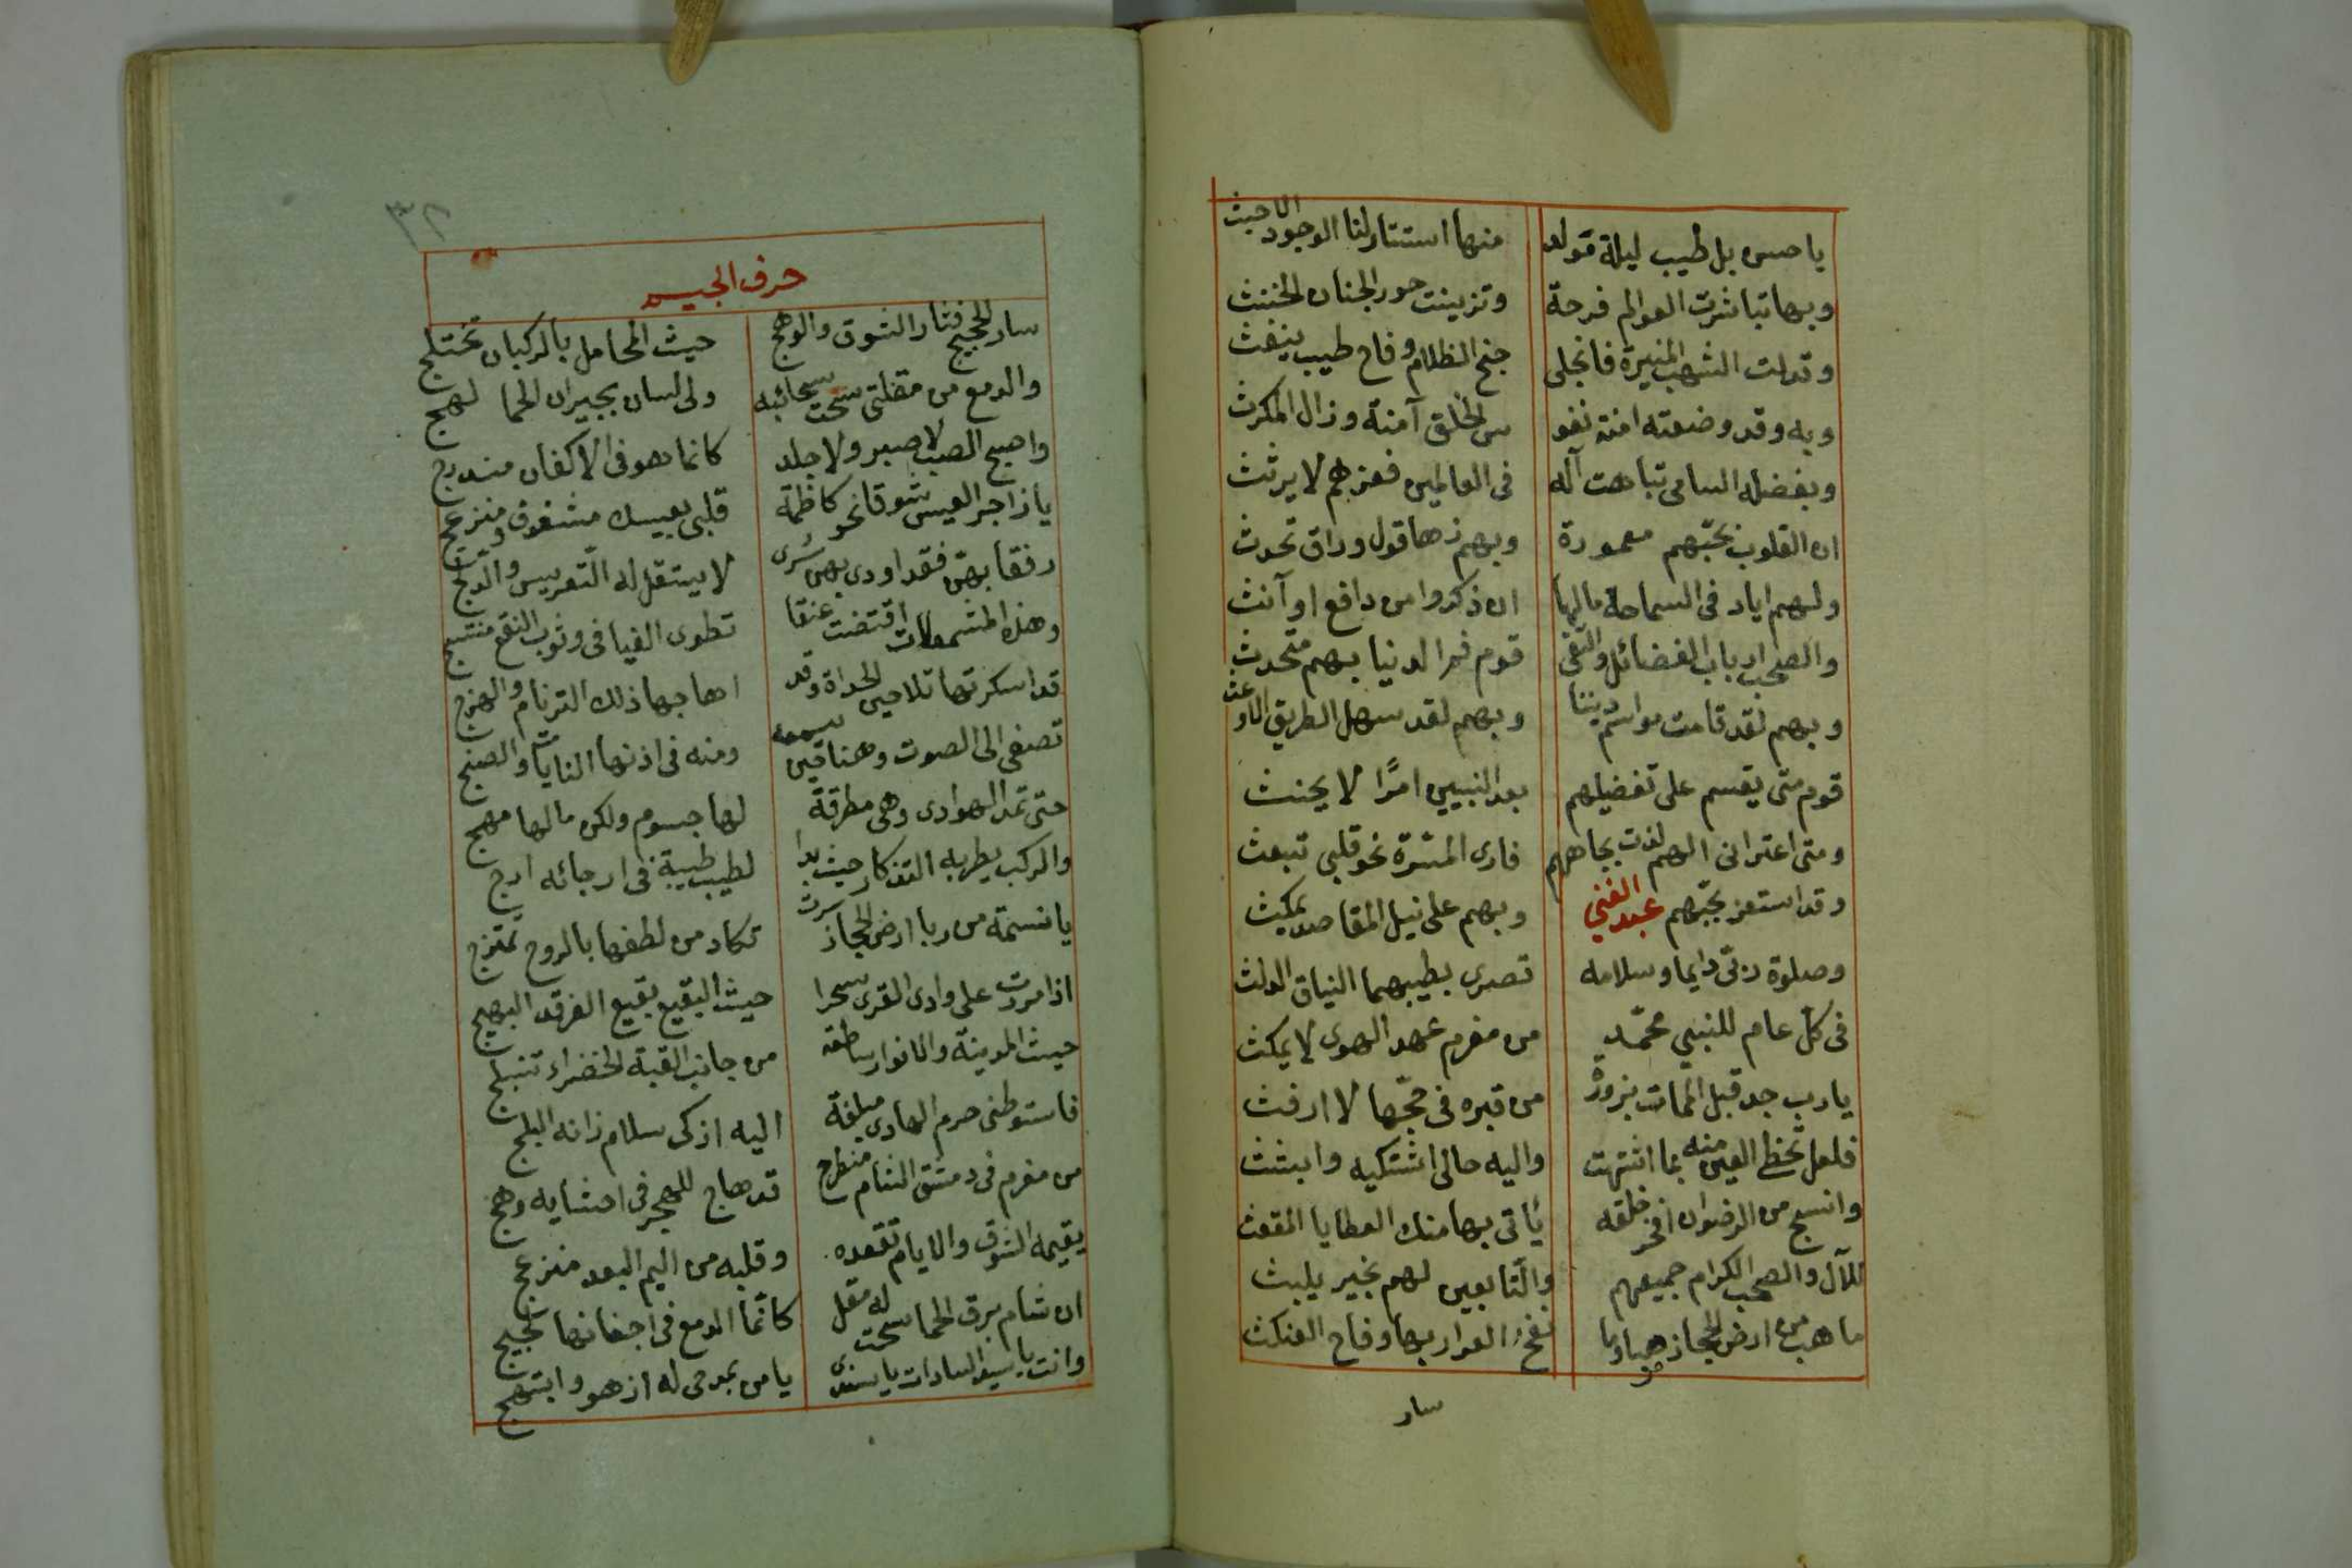 ياحسن بل طيب ليلة تولد منها استنار لنا الوجود الاحيث
وبها تباشرت العوالم فرحة وتزينت حور الجنان الخنث
وتدلت الشهب المنيرة فانجلى جنح الظلام وفاح طيب ينفث
وبه وقد وضعته امنة نفو س الخلق آمنة وزال المكرث
وبفضله السامى تباهت آله فى العالمين فعزهم لا يرثث
ان القلوب بحبّهم معمورة وبهم زها قول وراق تحدث
ولهم اياد فى السماحة مالها ان ذكروا من دافع او آنث
والصحب ارباب الفضائل والتقى قوم فم الدنيا بهم متحدث
وبهم لقد قامت مواسم ديننا وبهم لقد سهل الطريق الاوعث
قوم متى يقسم على تفضيلهم بعد النبيين امرًا لا يحنث
ومتى اعترانى الهم لذت بجاههم فارى المسرّة نحو قلبى تبعث
وقد استعز بحبّهم عبد الغني وبهم على نيل المقاصد يمكث
وصلوة ربّى دايما وسلامه تصرى بطيبهما النياق الدلث
فى كل عام للنبي محمّد من مغرم عهد الهوى لا يمكث
يارب جد قبل الممات بزورة من قبره فى حجّها لا ارفث
فلعل تحظى العين منه بما اشتهت واليه حالى اشتكيه وابثث
وانسج من الرضوان افخر خلقه يأتى بها منك العطايا المقعث
للآل والصحب الكرام جميعهم والتّابعين لهم بخير يلبث
ما هب من ارض الحجاز صبا وما نفح العرار بها وفاح العنكث
سار
٣٢
حرف الجيم
سار الحجيج فثار الشوق والوهج حيث المحامل بالركبان تختلج
والدمع من مقلتى سحت سحائبه ولى لسان بجيران الحما لهج
واصبح الصب لا صبر ولا جلد كانما هو فى الاكفان مندرج
يا زاجر العيس شوقا نحو كاظمة قلبى بعيسك مشغوف ومنزعج
رفقا بهنّ فقد اودى بهن سُرى لا يستقل له التّعريس والدلج
وهذه المشمعلات اقتضت عنقا تطوى الفيافى وثوب النقع منتسج
قد اسكرتها تلاحين الحداة وقد اهاجها ذلك الترنام والهزج
تصغى الى الصوت وهنا حين تسمعه ومنه فى اذنها النايات والصنج
حتى تمد الهوادى وهى مطرقة لها جسوم ولكن مالها مهج
والركب يطربه التذكار حيث بدا لطيب طيبة فى ارجائه ارج
يا نسمة من ربا ارض الحجاز سرت تكاد من لطفها بالروح تمتزج
اذا مررت على وادى القرى سحرا حيث البقيع بقيع الغرقد البهيج
حيث المدينة والانوار ساطعة من جانب القبة الخضراء تنبلج
فاستوطنى حرم الهادى مبلغة اليه ازكى سلام زانه البلج
من مغرم فى دمشق الشام منطرح قد هاج للهجر فى احشايه وهج
يقيمه الشوق والايام تقعده وقلبه من اليم البعد منزعج
ان شام برق الحما سحت له مقل كانّما الدمع فى اجفانها لجج
وانت يا سيد السادات يا سندى يا من بمدحى له ازهو وابتهج